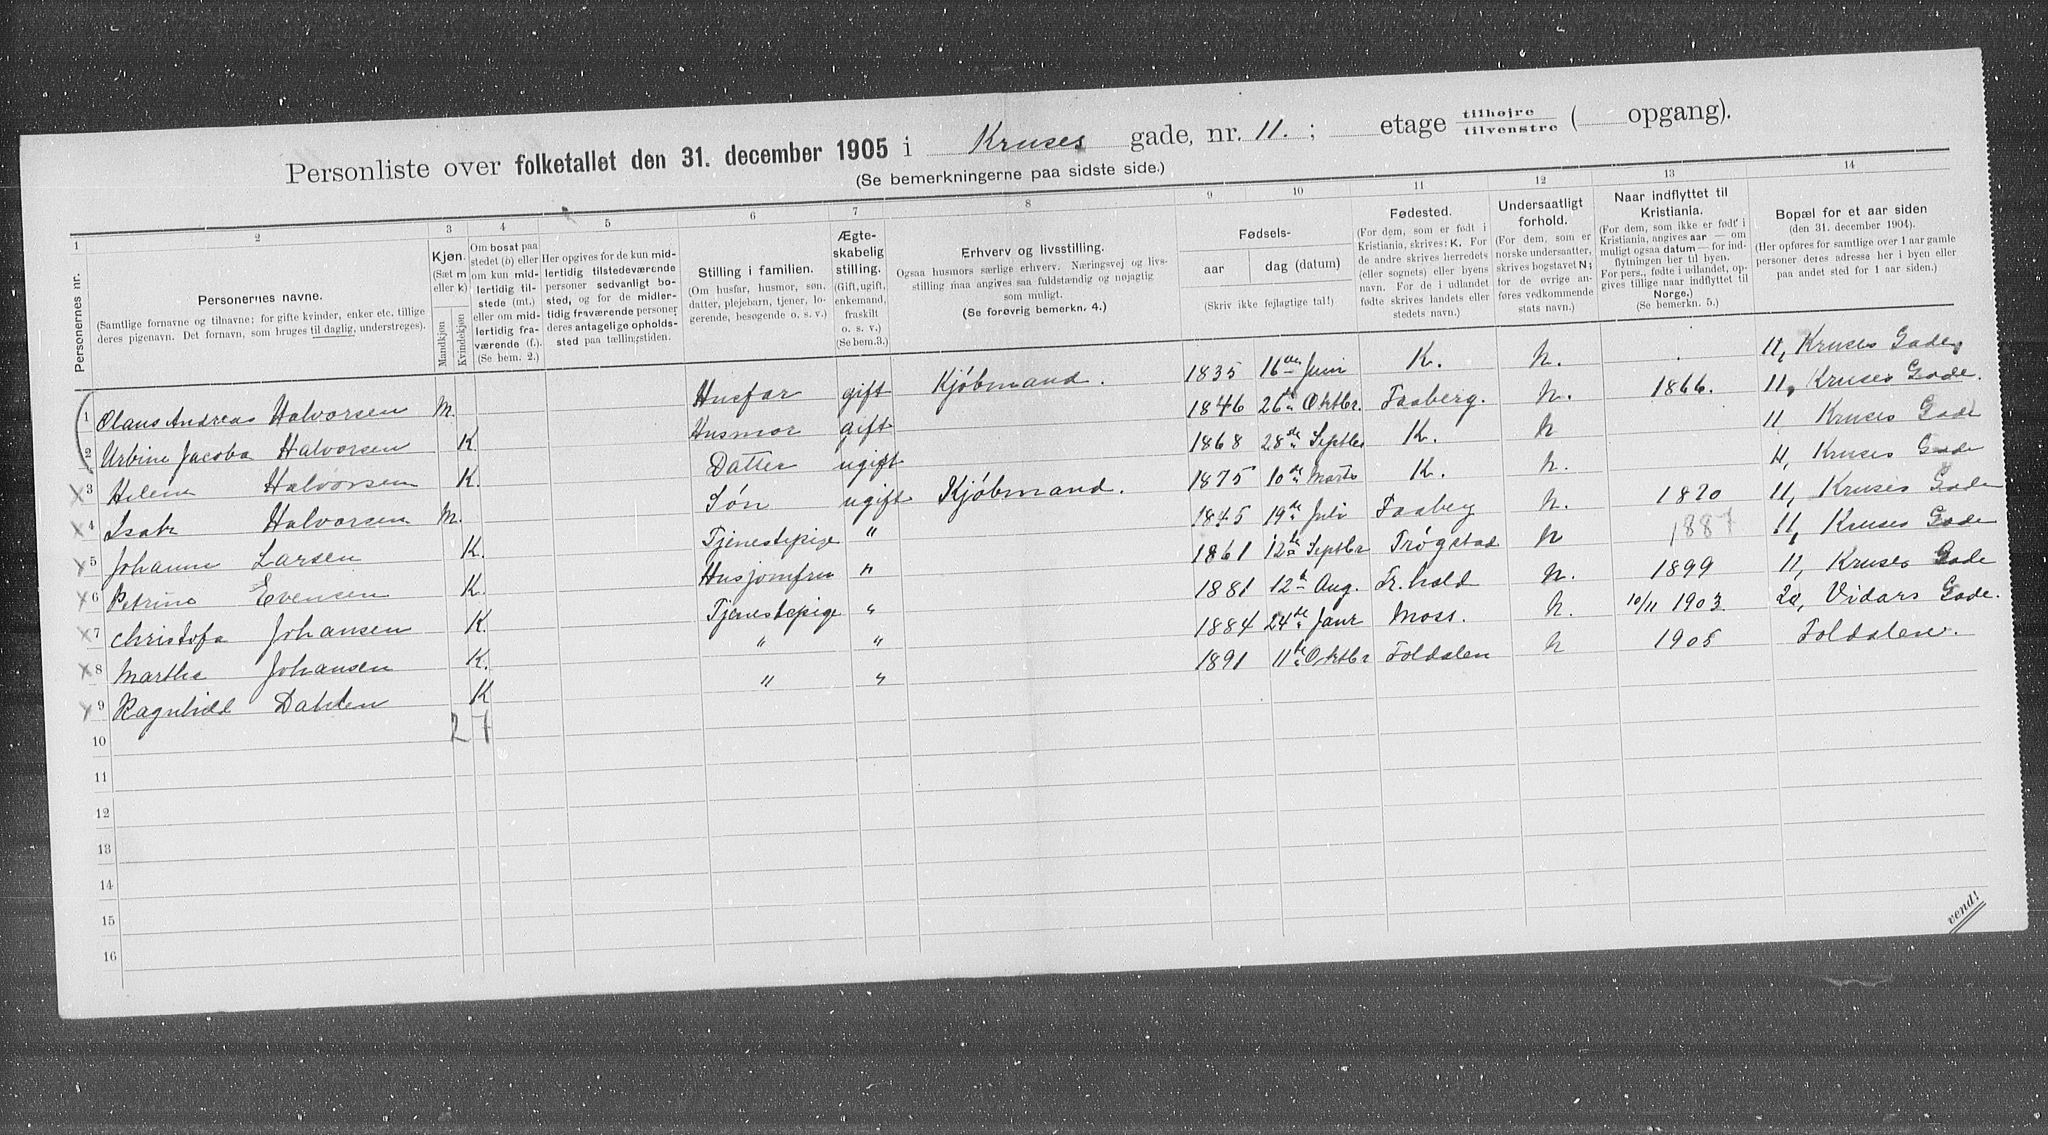 Personliste over folketallet den 31. december 1905 i Kruses gade, nr. 11. ; etage tilhøjre tilvenstre ( opgang).
(Se bemerkningerne paa sidste side.)
1 2 3 4 5 6 7 8 9 10 11 12 13 14
Personernes nr.
Personernes navne.
(Samtlige fornavne og tilnavne; for gifte kvinder, enker etc. tillige
deres pigenavn. Det fornavn, som bruges til daglig, understreges).
Kjøn.
(Sæt m
eller k)
Mandkjøn
Kvindekjøn
Om bosat paa
stedet (b) eller
om kun mid-
lertidig til-
stede (mt.)
eller om mid-
lertidig fra-
værende (f.)
(Se bem. 2.)
Her opgives for de kun mid-
lertidig tilstedeværende
personer sedvanlig bo-
sted, og for de midler-
tidig fraværende personer
deres antagelige opholds-
sted paa tællingstiden.
Stilling i familien.
(Om husfar, husmor, søn,
datter, plejebarn, tjener, lo-
gerende, besøgende o. s. v.)
Ægte-
skabelig
stilling.
(Gift, ugift,
enkemand,
fraskilt
o. s. v.)
(Se bem.3.)
Erhverv og livsstilling.
Ogsaa husmors særlige erhverv. Næringsvej og livs-
stilling maa angives saa fuldstændig og nøjagtig
som muligt.
(Se forøvrig bemerkn. 4.)
Fødsels-
aar dag (datum)
(Skriv ikke fejlagtige tal!)
Fødested.
(For dem, som er født i
Kristiania, skrives: K. For
de andre skrives herredets
(eller sognets) eller byens
navn. For de i udlandet
fødte skrives landets eller
stedets navn.)
Undersaatligt
forhold.
(For dem, som er
norske undersaatter,
skrives bogstavet N;
for de øvrige an-
føres vedkommende
stats navn.)
Naar indflyttet til
Kristiania.
(For dem, som ikke er født i
Kristiania, angives aar — om
muligt ogsaa datum — for ind-
flytningen her til byen.
For pers., fødte i udlandet, op-
gives tillige naar indflyttet til
Norge.)
(Se bemerkn. 5.)
Bopæl for et aar siden
(den 31. december 1904).
(Her opføres for samtlige over 1 aar gamle
personer deres adresse her i byen eller
paa andet sted for 1 aar siden.)
1 Olaus Andreas Halvorsen M. Husfar gift Kjøbmand. 1835 16de Juni K. N. 11, Kruses Gade,
2 Urbine Jacoba Halvorsen K. Husmor gift 1846 26de Oktbr. Faaberg. N. 1866. 11, Kruses Gade.
3 Helene Halvorsen K. Datter ugift 1868 28de Septbr K. N 11 Kruses Gade
4 Isak Halvorsen M. Søn ugift Kjøbmand. 1875 10de Marts K. N. 11, Kruses Gade
5 Johanne Larsen K. Tjenestepige " 1845 19de Juli Faaberg N. 1870 11, Kruses Gade
6 Petrine Evensen K. Husjomfru " 1861 12te Septbr Trøgstad N 1887 11, Kruses Gade
7 Christofa Johansen K. Tjenestepige " 1881 12te Aug. Fr.hald N. 1899 11, Kruses Gade
8 Martha Johansen K. " " 1884 24de Janr Moss. N. 10/11 1903 20, Vidars Gade.
9 Ragnhild Dahlen K " " 1891 11te Oktbr Foldalen N 1905 Foldalen.
10 2 7
11
12
13
14
15
16
vend!